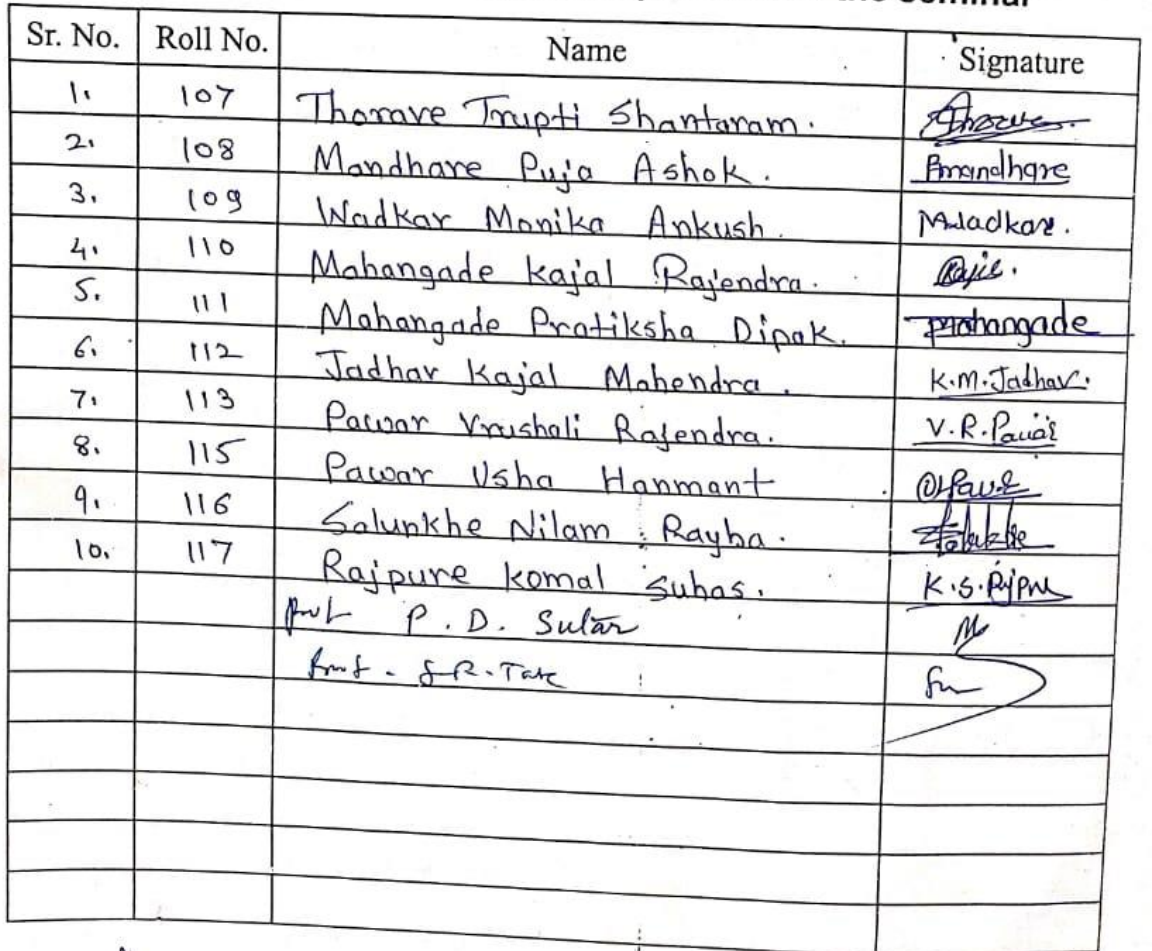 the seminar
Sr. No. Roll No. Name Signature
1. 107 Thorave Trupti Shantaram. Thorave
2. 108 Mandhare Puja Ashok. Pmandhare
3. 109 Wadkar Monika Ankush. M.Wadkar.
4. 110 Mahangade Kajal Rajendra.
5. 111 Mahangade Pratiksha Dipak. Pmahangade
6. 112 Jadhav Kajal Mahendra. K.M.Jadhav.
7. 113 Pawar Vrushali Rajendra. V.R.Pawar
8. 115 Pawar Usha Hanmant
9. 116 Salunkhe Nilam Rayba.
10. 117 Rajpure Komal Suhas. K.S.Rjpure
Prof P. D. Sutar
Prof. S.R. Tate